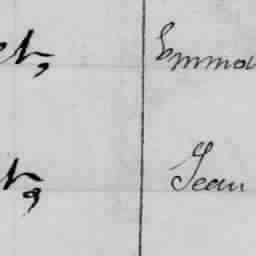 et, Emma
t, Jean